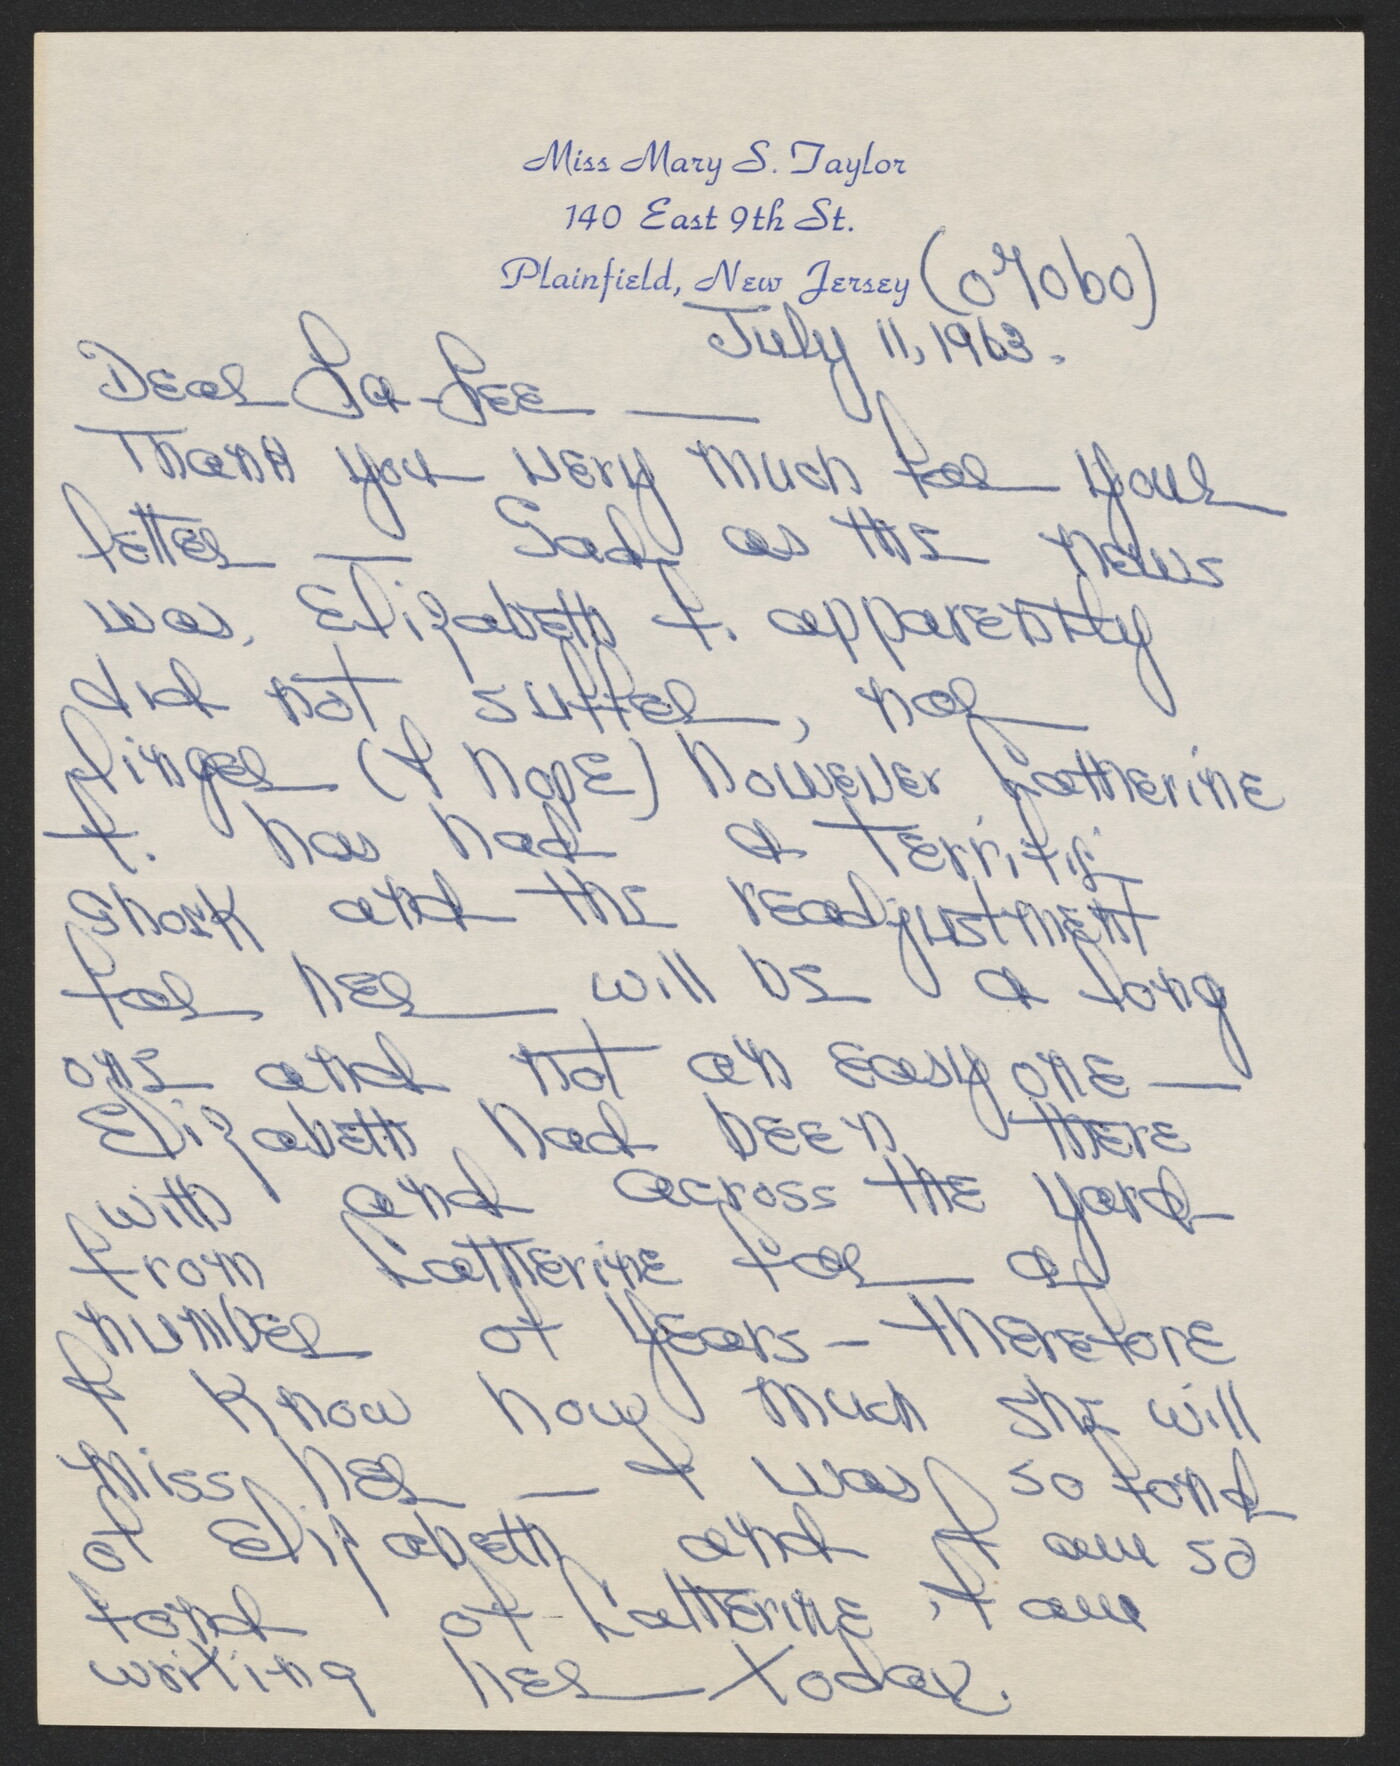 Miss Mary S. Taylor
140 East 9th St.
Plainfield, New Jersey (07060)
July 11, 1963.
Dear La-Lee —
Thank you very much for your
letter — Sad as the news
was, Elizabeth F. apparently
did not suffer, nor
linger (I hope) however Catherine
F. has had a terrific
shock and the readjustment
for her will be a long
one and not an easy one —
Elizabeth had been there
with and across the yard
from Catherine for a
number of years — therefore
I know how much she will
miss her — I was so fond
of Elizabeth and I am so
fond of Catherine, I am
writing her today.